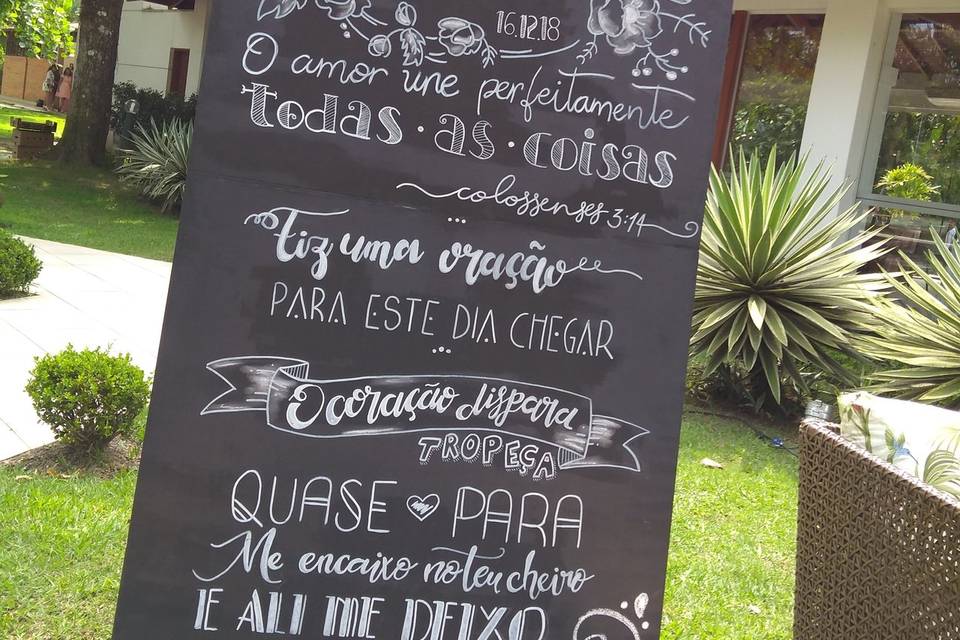 16.12.18
O amor une perfeitamente
todas • as • coisas
colossenses 3:14
Fiz uma oração
PARA ESTE DIA CHEGAR
O coração dispara
TROPEÇA
QUASE PARA
Me encaixo no teu cheiro
E ALI ME DEIXO